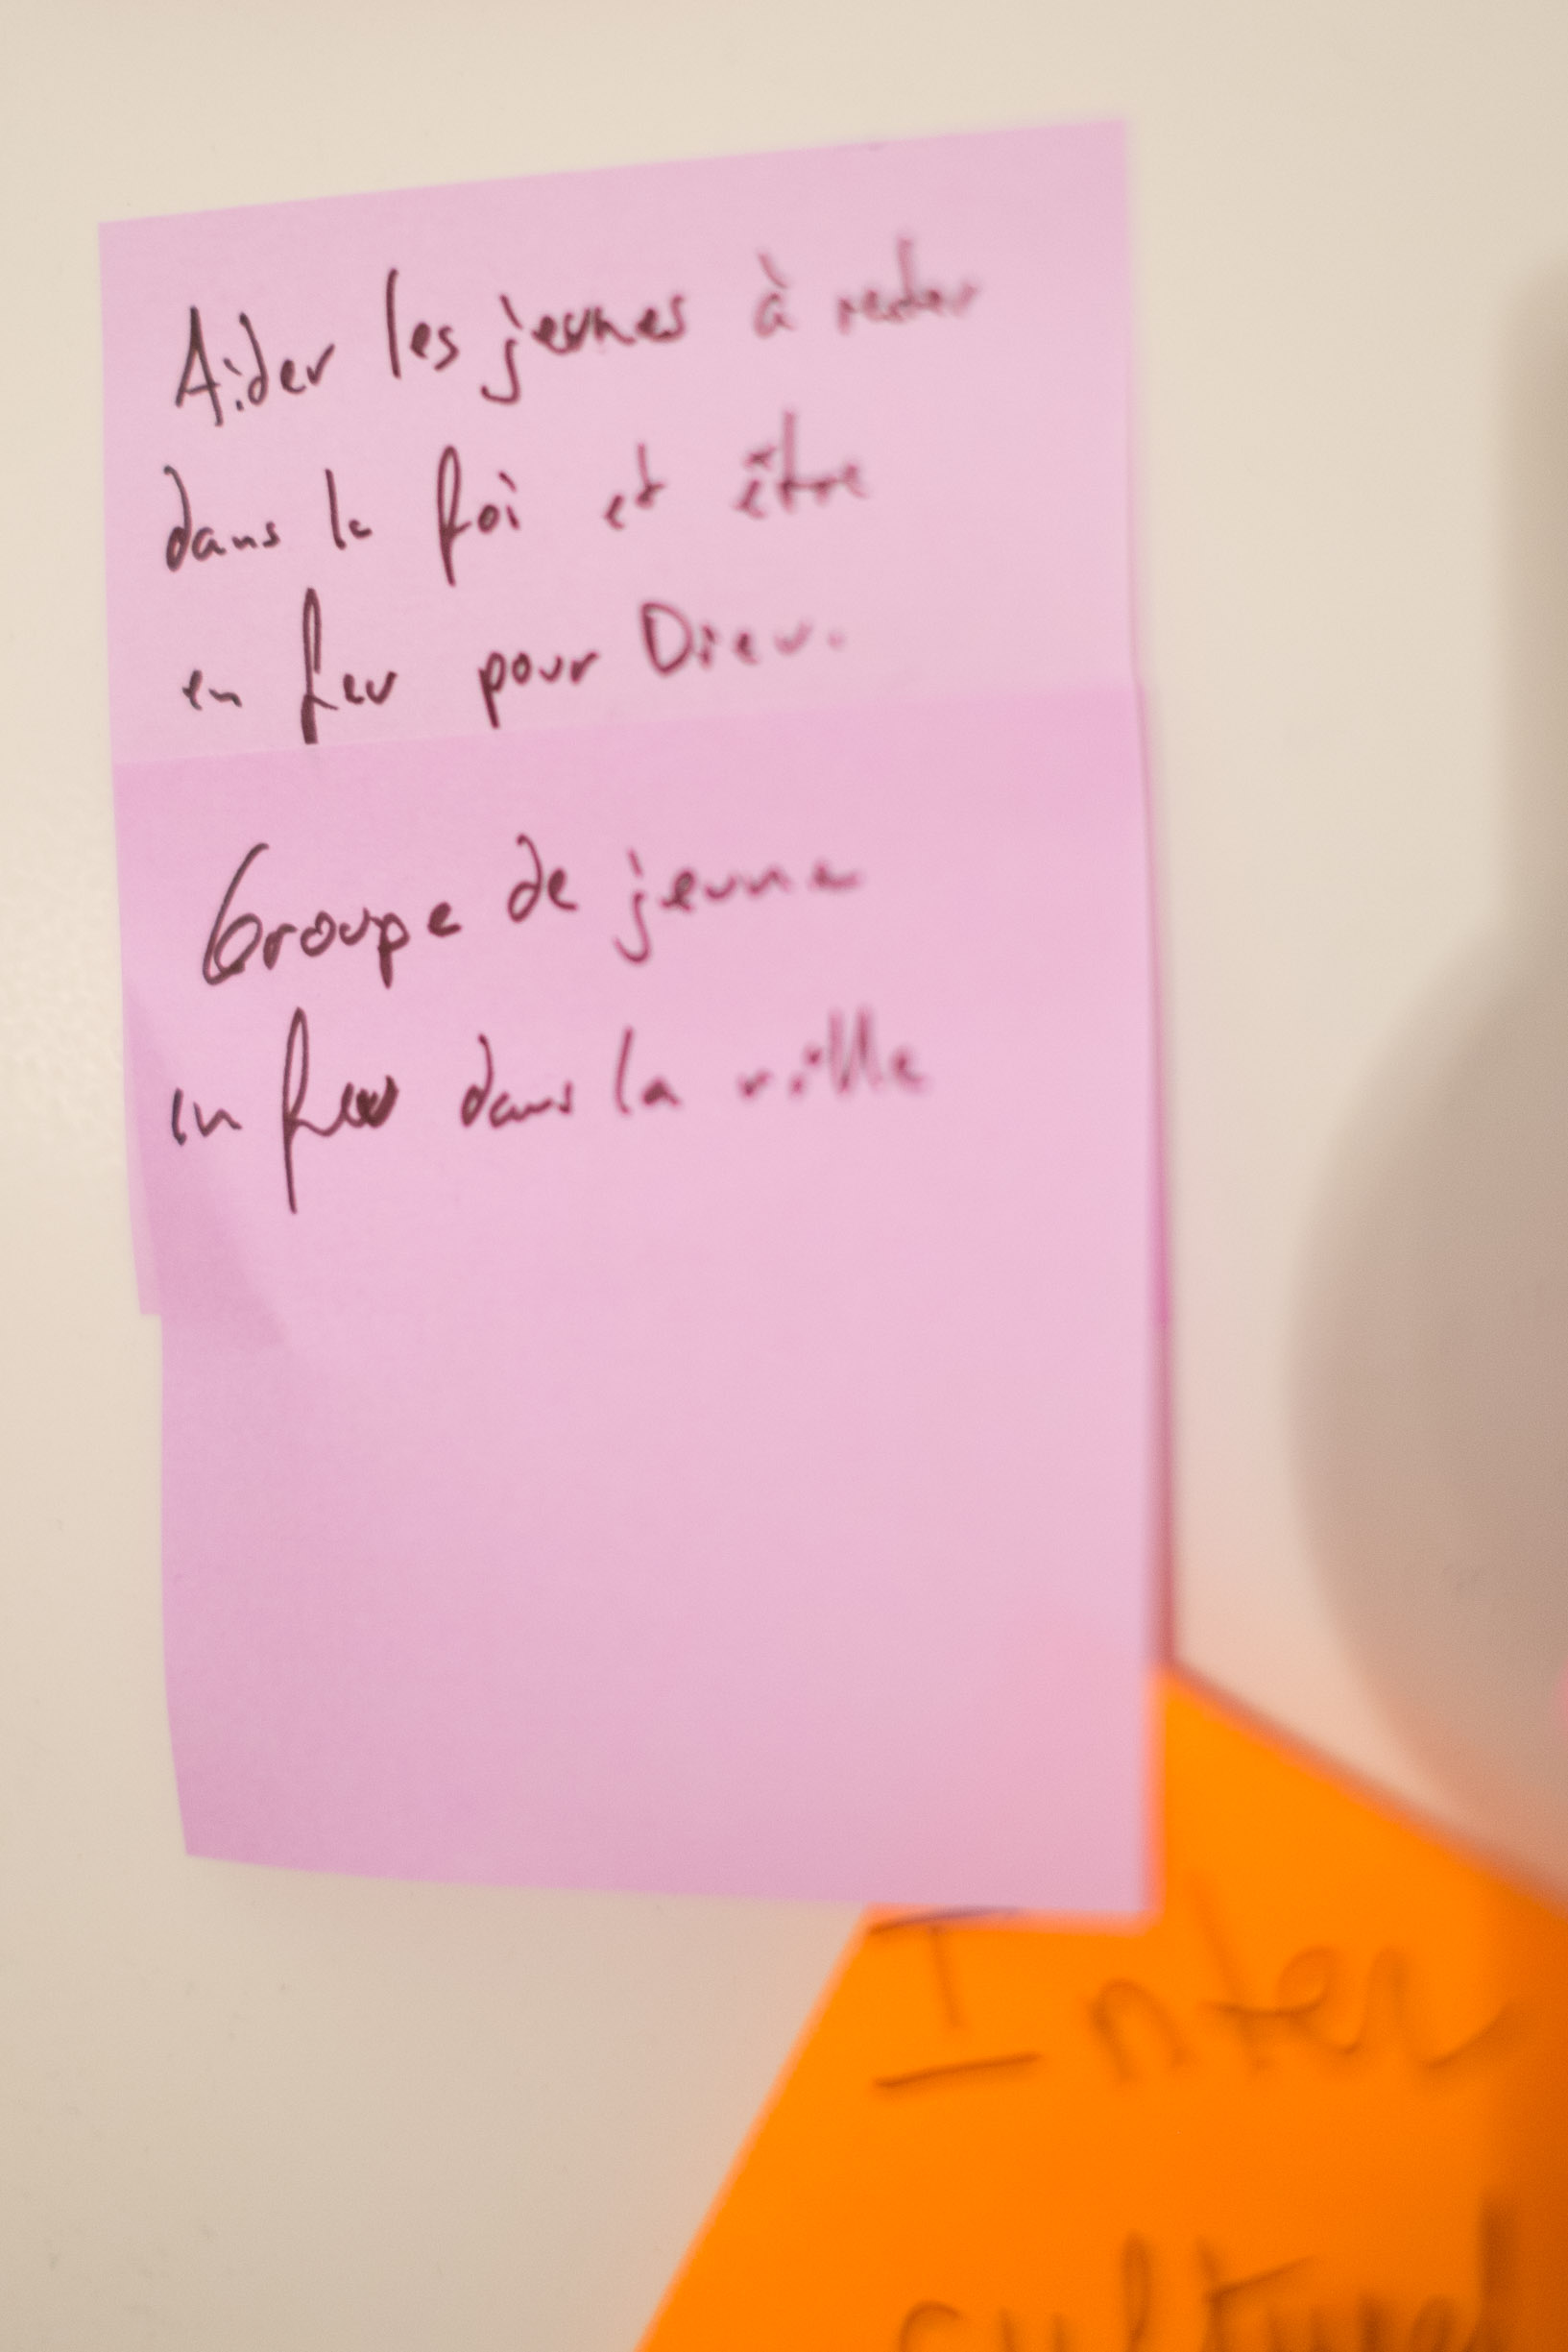 Aider les jeunes à rester
dans la foi et être
en feu pour Dieu.
Groupe de jeune
en feu dans la ville
Inter
culturel